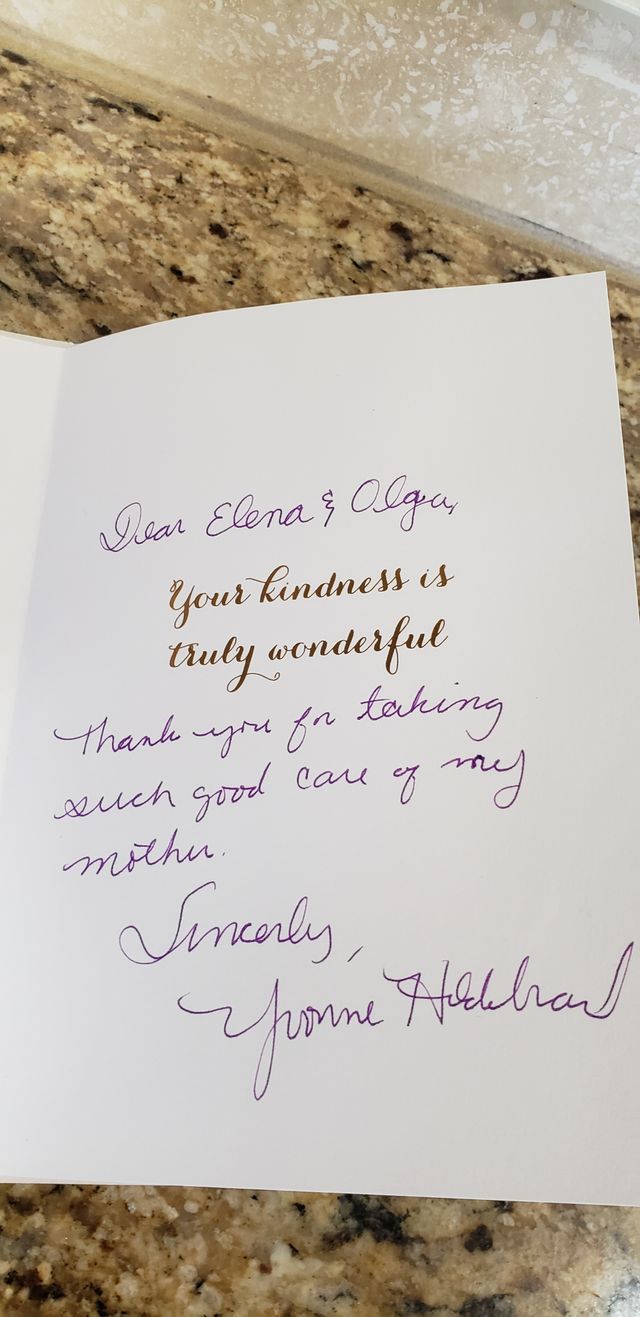 Dear Elena & Olga,
Your kindness is
truly wonderful
Thank you for taking
such good care of my
mother.
Sincerely,
Yvonne Hildebrand